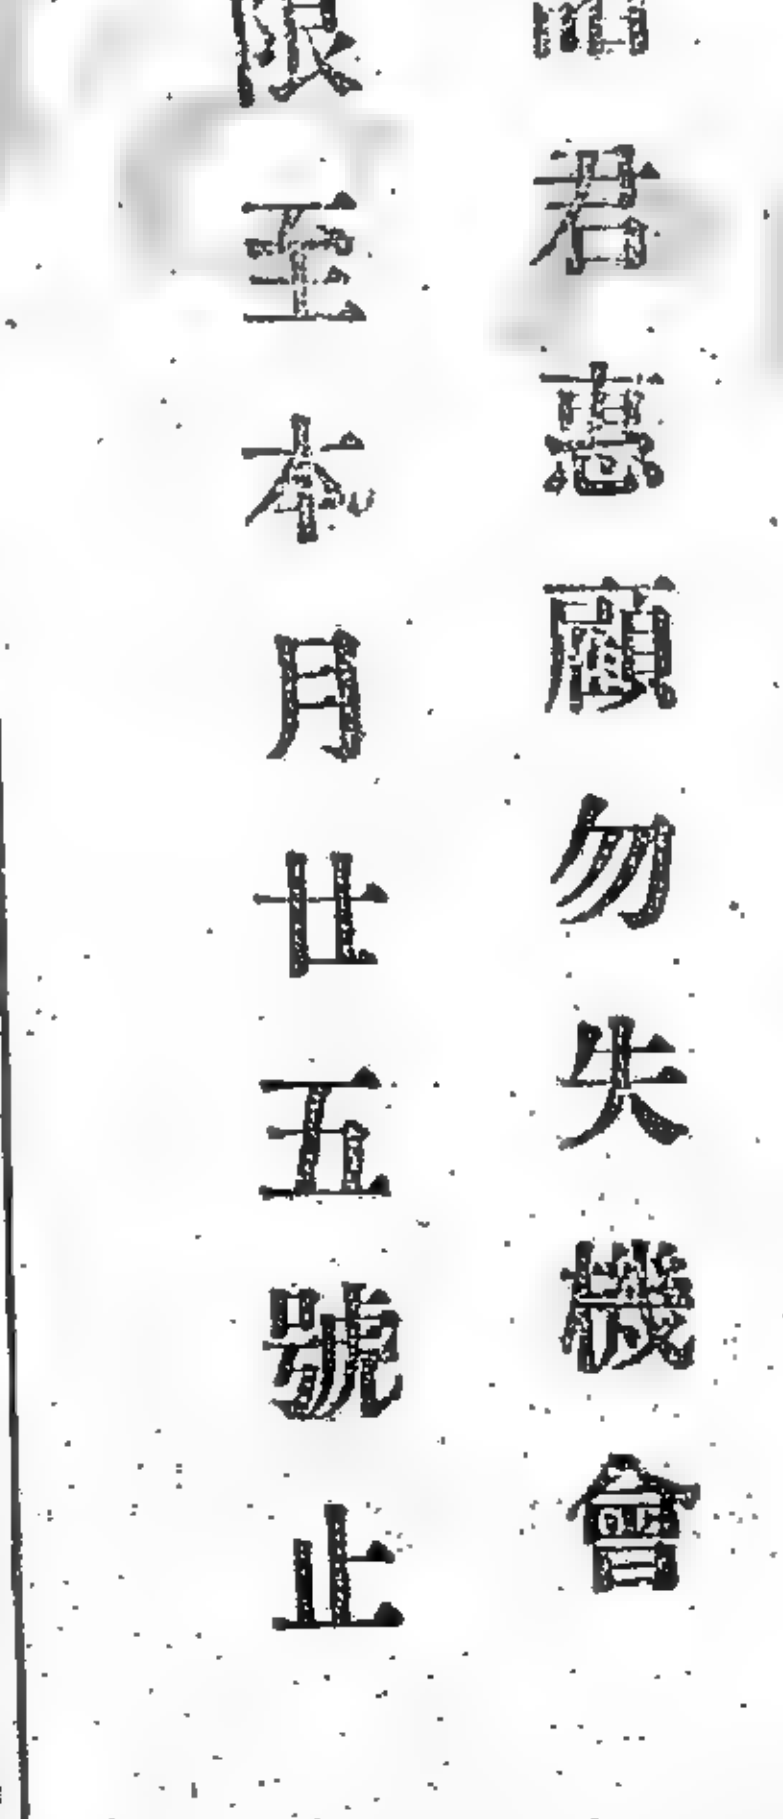 君惠顧勿失機會
限至本月廿五號止